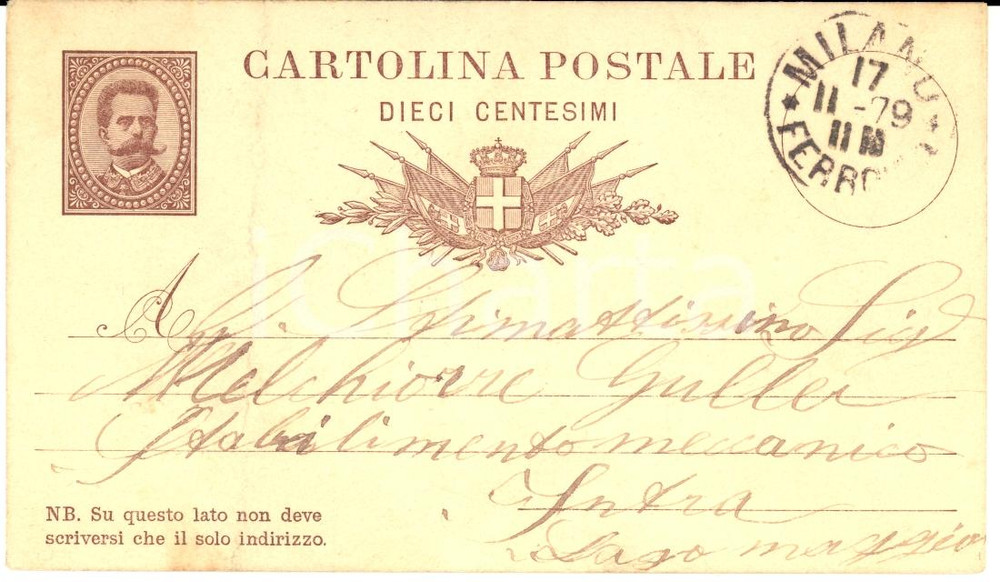 CARTOLINA POSTALE
DIECI CENTESIMI
MILANO
17
11-79
FERROVIA
A
All. Stimattissimo Sig
Melchiorre Guller
Stabilimento meccanico
Intra
Lago maggio
NB. Su questo lato non deve
scriversi che il solo indirizzo.
iCharta